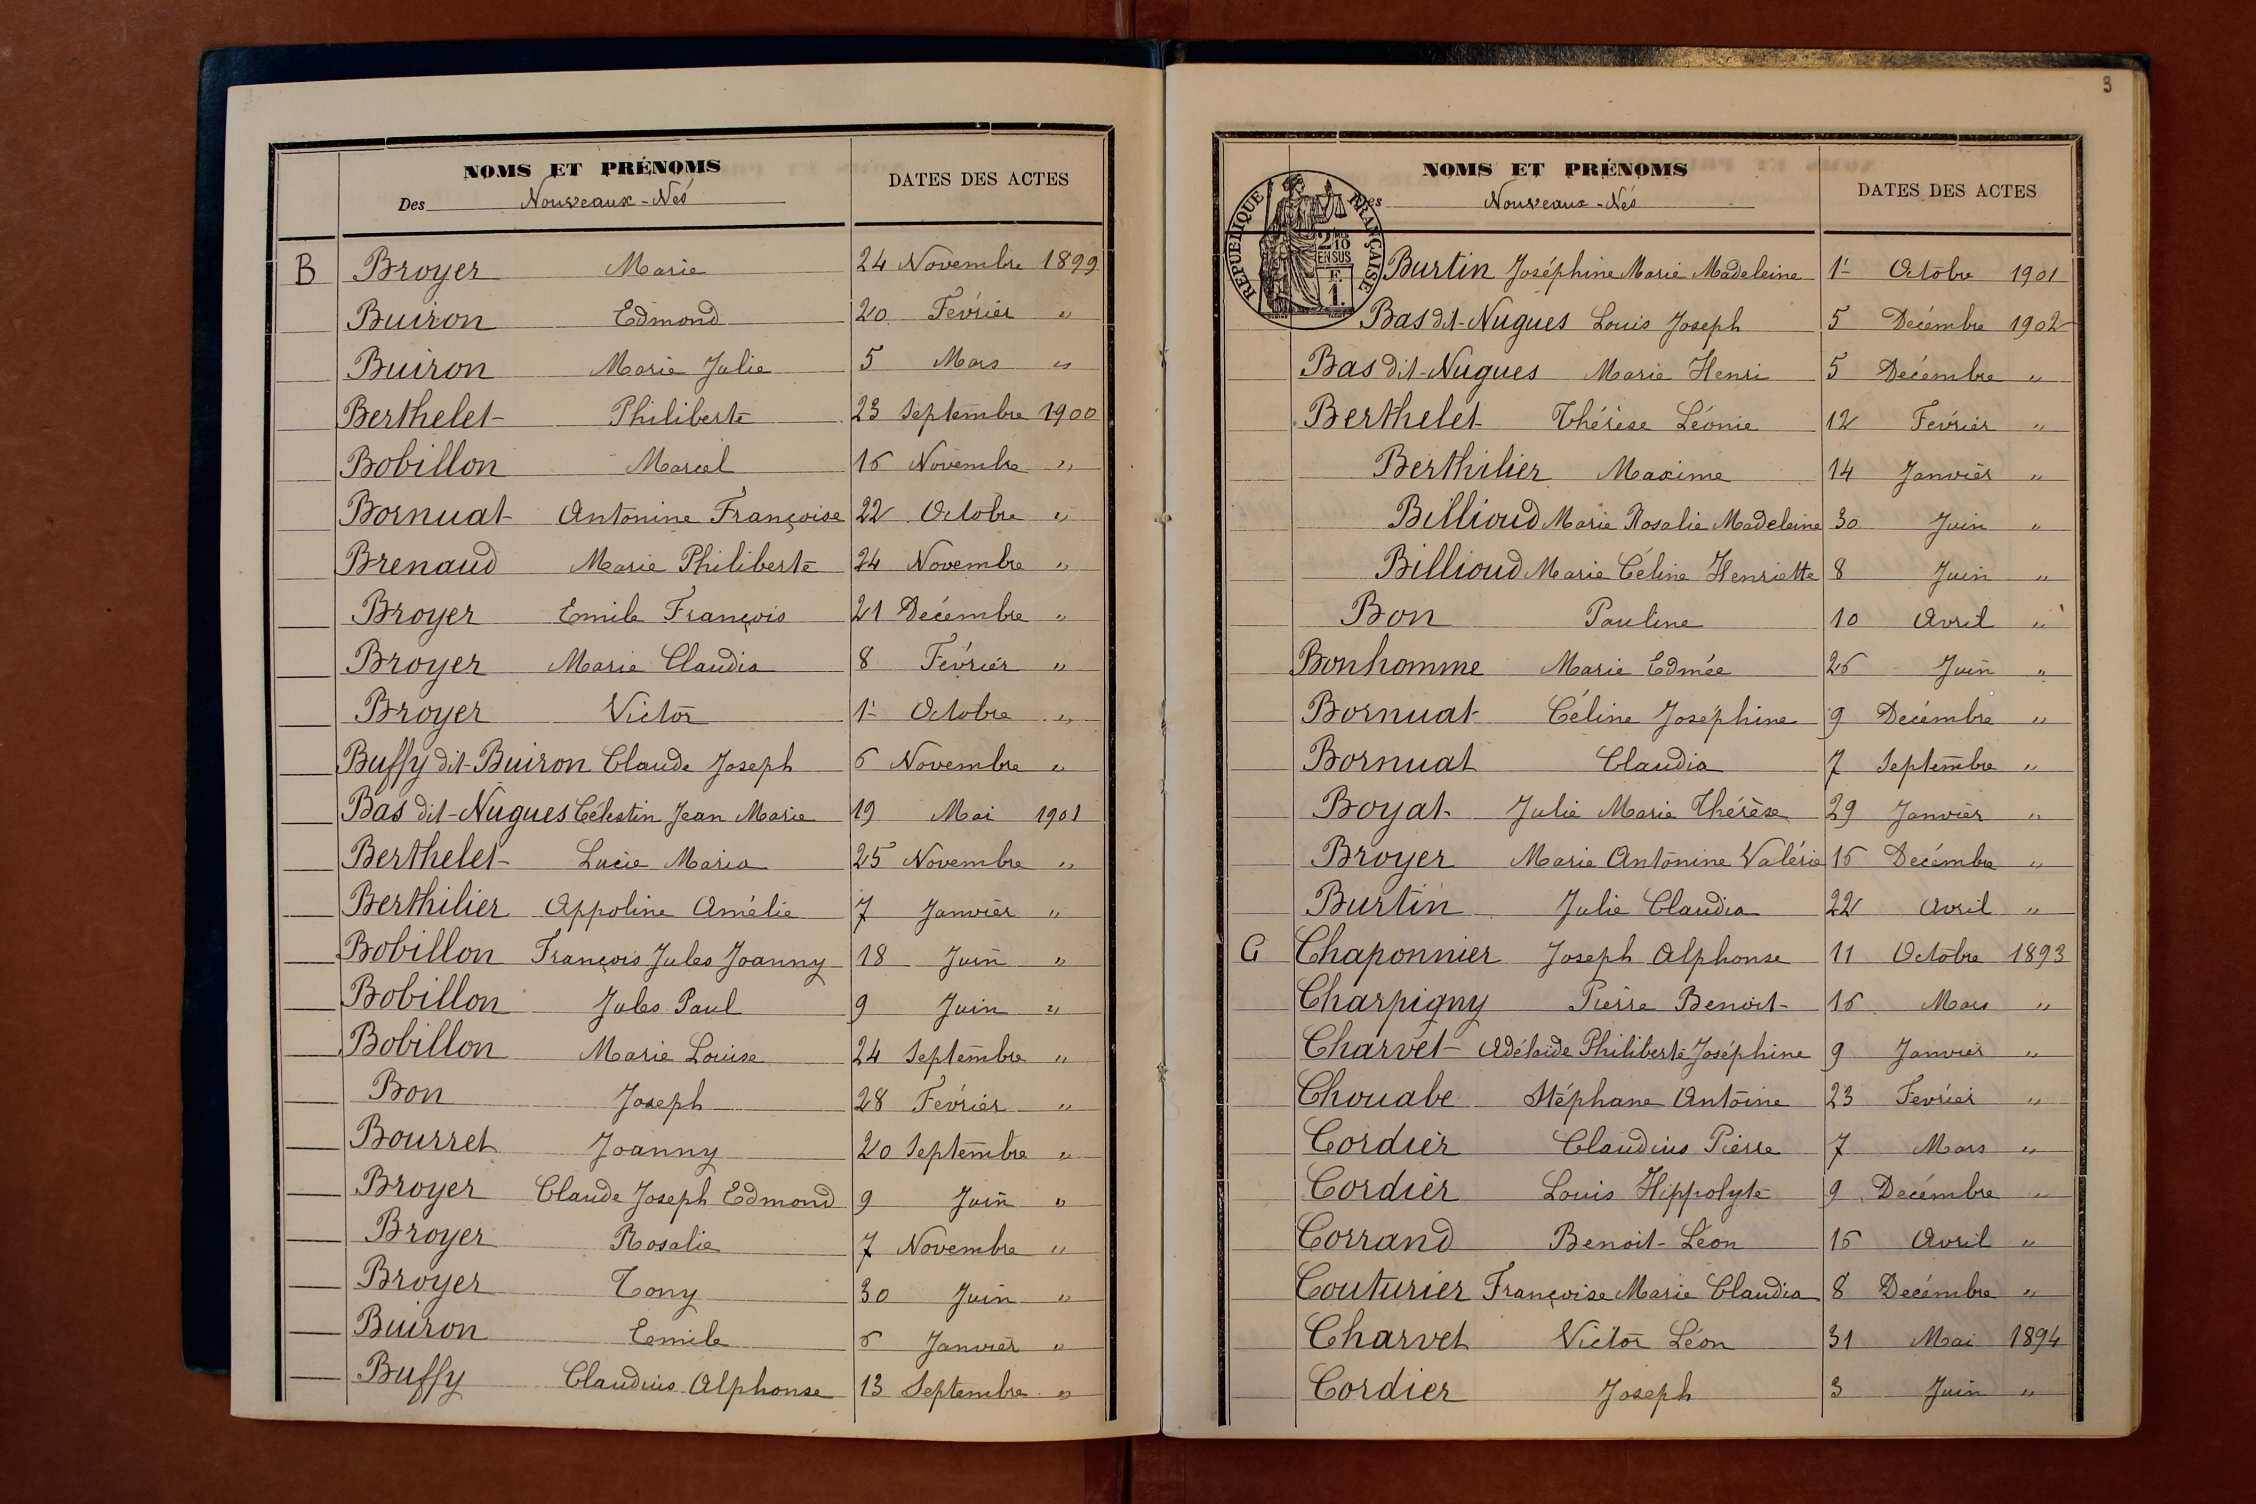 NOMS ET PRÉNOMS
Des Nouveaux-Nés
DATES DES ACTES
B Broyer Marie 24 Novembre 1899
Buiron Edmond 20 Février "
Buiron Marie Julie 5 Mars "
Berthelet Philiberte 23 Septembre 1900
Bobillon Marcel 16 Novembre "
Bornuat Antonine Françoise 22 Octobre "
Brenaud Marie Philiberte 24 Novembre "
Broyer Emile François 21 Décembre "
Broyer Marie Claudia 8 Février "
Broyer Victor 1er Octobre "
Buffy dit-Buiron Claude Joseph 6 Novembre "
Bas dit-Nugues Célestin Jean Marie 19 Mai 1901
Berthelet Lucie Maria 25 Novembre "
Berthilier Appoline Amélie 7 Janvier "
Bobillon François Jules Joanny 18 Juin "
Bobillon Jules Paul 9 Juin "
Bobillon Marie Louise 24 Septembre "
Bon Joseph 28 Février "
Bourret Joanny 20 Septembre "
Broyer Claude Joseph Edmond 9 Juin "
Broyer Rosalie 7 Novembre "
Broyer Tony 30 Juin "
Buiron Eemile 6 Janvier "
Buffy Claudius Alphonse 13 Septembre "
3
NOMS ET PRÉNOMS
des Nouveaux-Nés
DATES DES ACTES
RÉPUBLIQUE FRANÇAISE
2/10
EN SUS
F.
1.
Burtin Joséphine Marie Madeleine 1er Octobre 1901
Bas dit-Nugues Louis Joseph 5 Décembre 1902
Bas dit-Nugues Marie Henri 5 Décembre "
Berthelet Thérèse Léonie 12 Février "
Berthilier Maxime 14 Janvier "
Billioud Marie Rosalie Madeleine 30 Juin "
Billioud Marie Céline Henriette 8 Juin "
Bon Pauline 10 Avril "
Bonhomme Marie Edmée 26 Juin "
Bornuat Céline Joséphine 9 Décembre "
Bornuat Claudia 7 Septembre "
Boyat Julie Marie Thérèse 29 Janvier "
Broyer Marie Antonine Valérie 16 Décembre "
Burtin Julie Claudia 22 Avril "
C Chaponnier Joseph Alphonse 11 Octobre 1893
Charpigny Pierre Benoit 16 Mars "
Charvet Adélaïde Philiberte Joséphine 9 Janvier "
Chouabe Stéphane Antoine 23 Février "
Cordier Claudius Pierre 7 Mars "
Cordier Louis Hippolyte 9 Décembre "
Corrand Benoit-Léon 16 Avril "
Couturier Françoise Marie Claudia 8 Décembre "
Charvet Victor Léon 31 Mai 1894
Cordier Joseph 3 Juin "